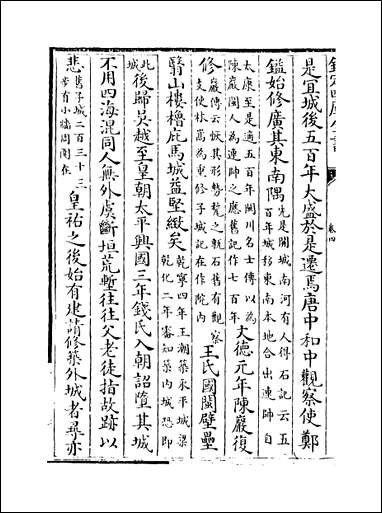 是宜城後五百年大盛於是遷焉唐中和中觀察使鄭
鎰始修廣其東南隅先是閩城南河有人得石記云五
百年城移東南本地合出連帥自
太康至是適五百年閩川名士傳以為
陳巖閩人為連帥之應舊記作七百年文德元年陳巖復
修巖傳云恢其形勢甃之甎石舊有觀察
支使林蒍為重修子城記在作院內王氏國閩壁壘
翳山樓櫓庇馬城益堅緻矣乾寧四年王潮築永平城梁
乾化二年審知築內城恐即
此城後歸吳越至皇朝太平興國三年錢氏入朝詔墮其城
不用四海混同人無外虞斷垣荒塹往往父老徒指故跡以
悲舊子城二百三十三
步有小牆周閣在皇祐之後始有建請修築外城者尋亦
卷四